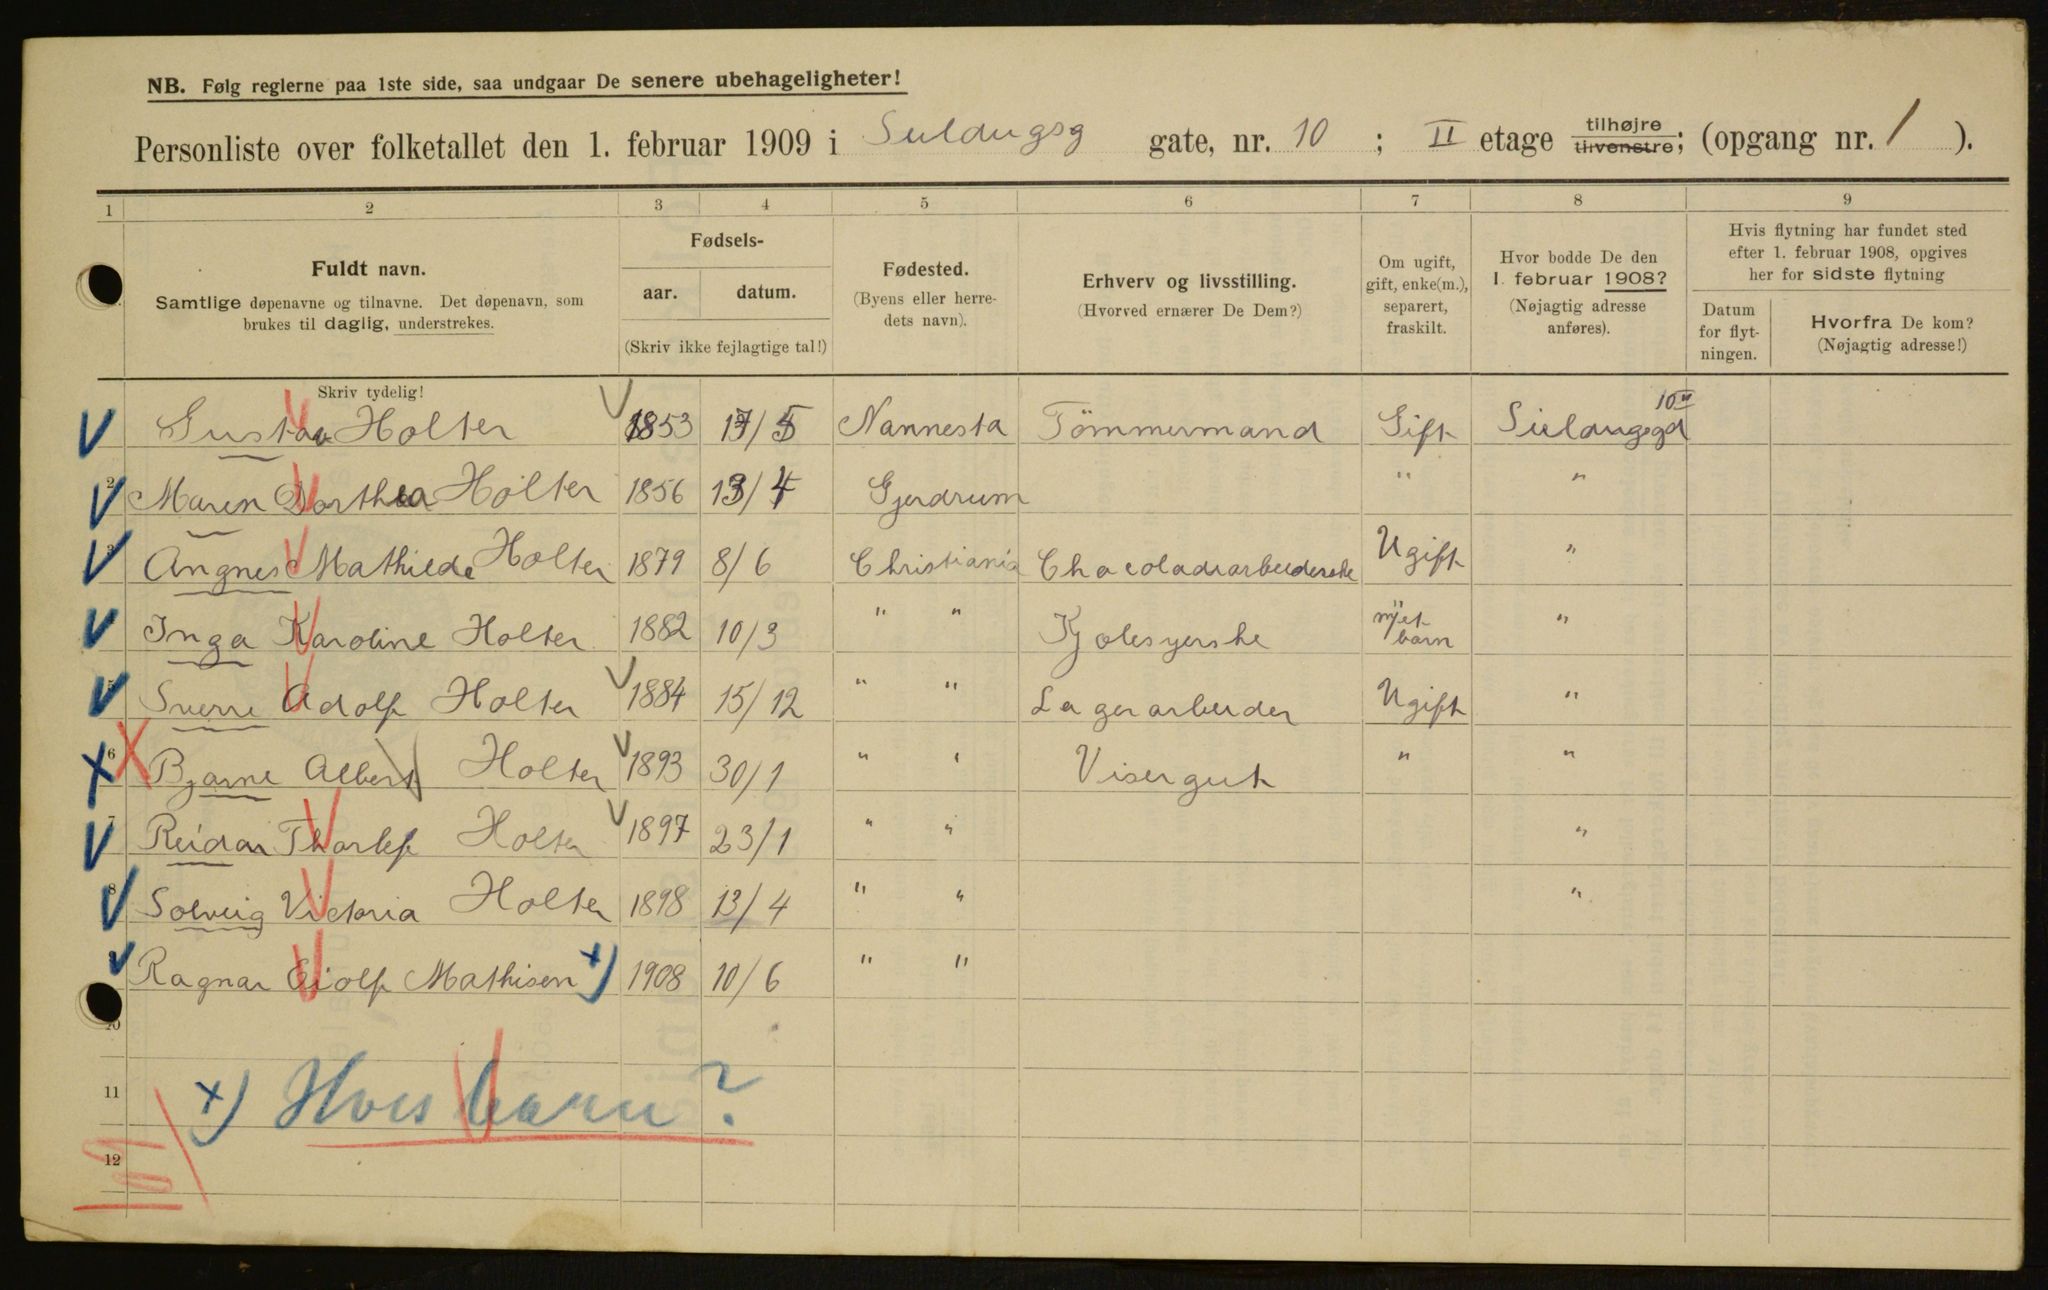 NB. Følg reglerne paa 1ste side, saa undgaar De senere ubehageligheter!
Personliste over folketallet den 1. februar 1909 i Suldugsg gate, nr. 10 ; II etage tilhøjre tilvenstre; (opgang nr. 1 ).
1 2 3 4 5 6 7 8 9
Fuldt navn.
Samtlige døpenavne og tilnavne. Det døpenavn, som
brukes til daglig, understrekes.
Fødsels-
aar. datum.
(Skriv ikke fejlagtige tal!)
Fødested.
(Byens eller herre-
dets navn).
Erhverv og livsstilling.
(Hvorved ernærer De Dem?)
Om ugift,
gift, enke(m.),
separert,
fraskilt.
Hvor bodde De den
1. februar 1908?
(Nøjagtig adresse
anføres).
Hvis flytning har fundet sted
efter 1. februar 1908, opgives
her for sidste flytning
Datum
for flyt-
ningen.
Hvorfra De kom?
(Nøjagtig adresse!)
Skriv tydelig!
Gustav Holter 1853 17/5 Nannesta Tömmermand Gift Suldugsgd 10 II
2 Maren Dorthea Holter 1856 13/4 Gjerdrum " "
3 Angnes Mathilde Holter 1879 8/6 Christiania Chocoladearbeiderske Ugift "
Inga Karoline Holter 1882 10/3 " " Kjolesyerske "
5 Sverre Adolf Holter 1884 15/12 " " Lagerarbeider Ugift "
6 Bjarne Albert Holter 1893 30/1 " " Visergut " "
7 Reidar Thorleif Holter 1897 23/1 " " "
8 Solveig Victoria Holter 1898 13/4 " " "
9 Ragnar Eiolf Mathisen +) 1908 10/6 " "
10
11 +) Hvis barn?
12